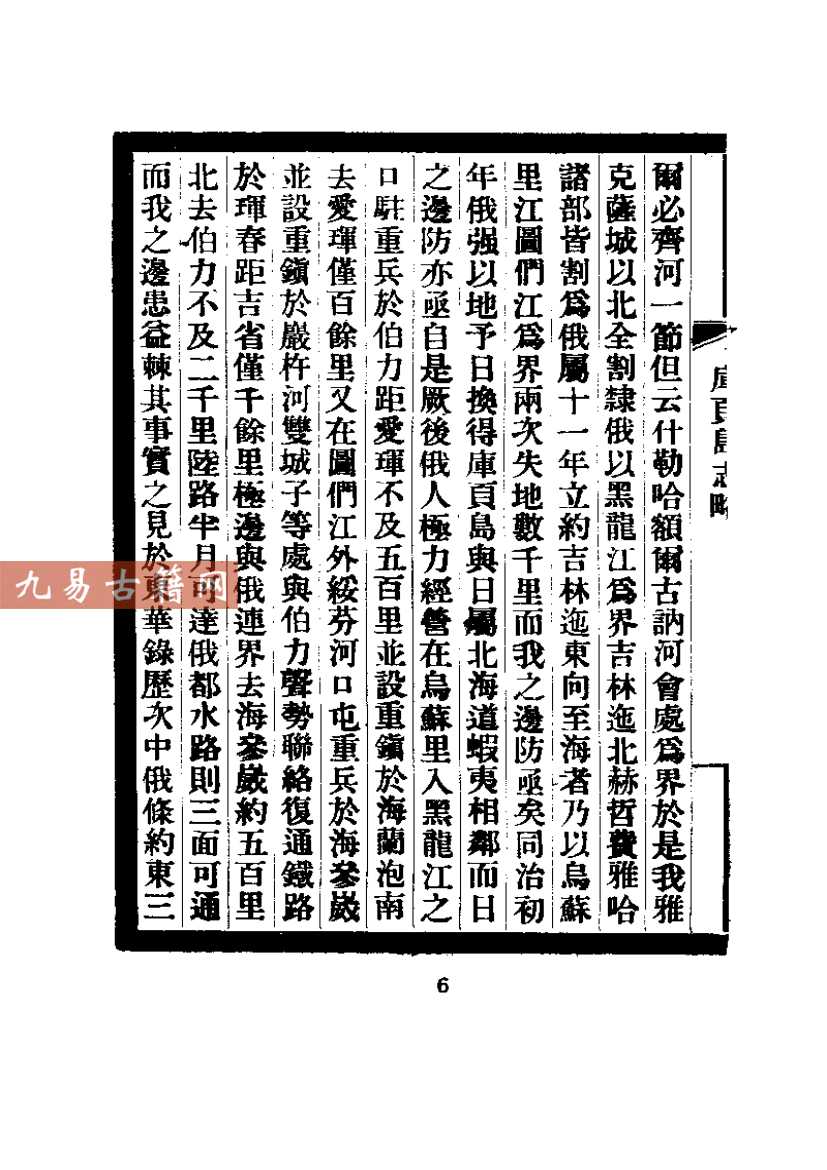 庫頁島志略
爾必齊河一節但云什勒哈額爾古訥河會處爲界於是我雅
克薩城以北全割隸俄以黑龍江爲界吉林迤北赫哲費雅哈
諸部皆割爲俄屬十一年立約吉林迤東向至海者乃以烏蘇
里江圖們江爲界兩次失地數千里而我之邊防亟矣同治初
年俄强以地予日換得庫頁島與日屬北海道蝦夷相鄰而日
之邊防亦亟自是厥後俄人極力經營在烏蘇里入黑龍江之
口駐重兵於伯力距愛琿不及五百里並設重鎭於海蘭泡南
去愛琿僅百餘里又在圖們江外綏芬河口屯重兵於海參崴
並設重鎭於巖杵河雙城子等處與伯力聲勢聯絡復通鐵路
於琿春距吉省僅千餘里極邊與俄連界去海參崴約五百里
北去伯力不及二千里陸路半月可達俄都水路則三面可通
而我之邊患益棘其事實之見於東華錄歷次中俄條約東三
九易古籍网
6